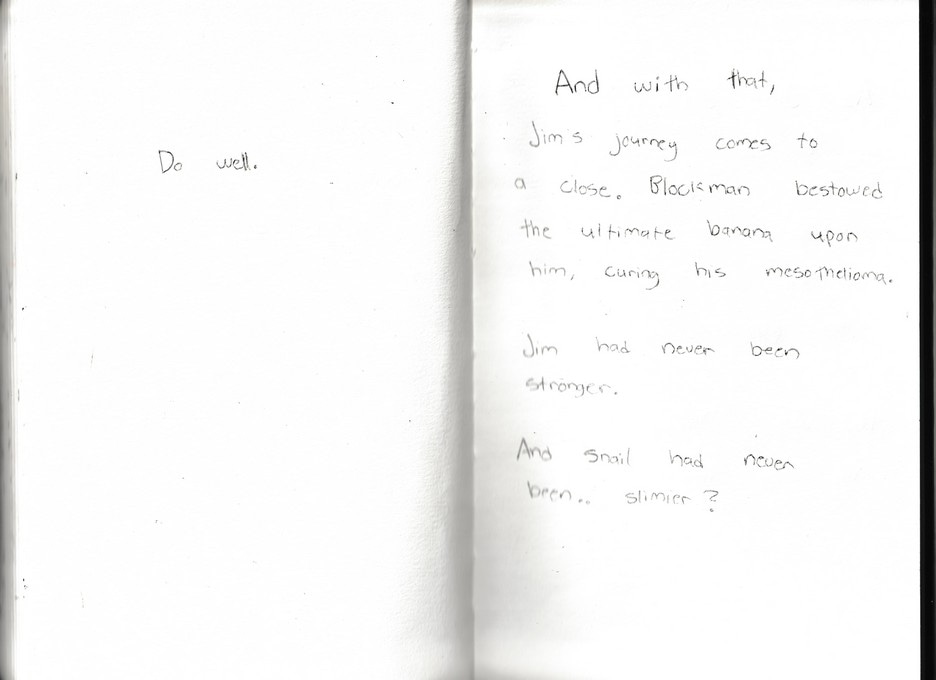 Do well.
And with that,
Jims journey comes to
a close. Blockman bestowed
the ultimate banana upon
him, curing his mesothelioma.
Jim had never been
stronger.
And snail had never
been.. slimier?